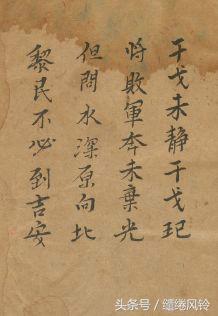 干戈未静干戈玘
将敗軍奔未棄光
但問水深原向北
黎民不必到吉安
头条号 / 缱绻风铃